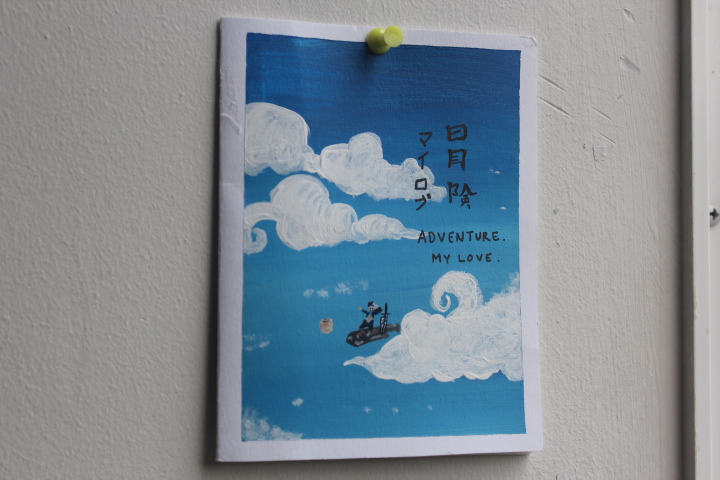 冒険
マイロブ
ADVENTURE.
MY LOVE.